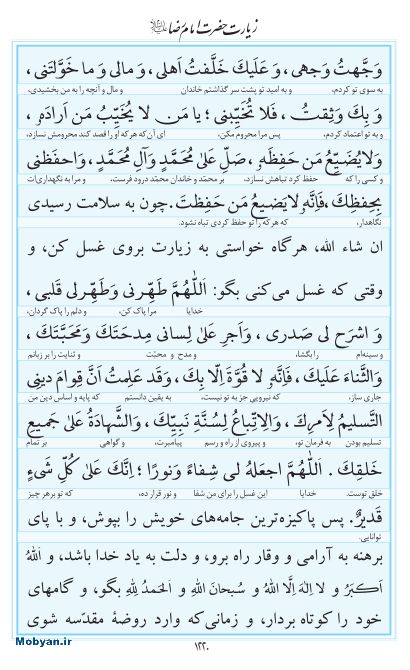 زیارت حضرت امام رضا علیه‌السلام
وَجَّهتُ وَجهی، وَ عَلَیکَ خَلَّفتُ اَهلی، وَ مالی وَ ما خَوَّلتَنی،
به سوی تو کردم، و به امید تو پشت سر گذاشتم خاندان و مال و آنچه را به من بخشیدی،
وَ بِکَ وَثِقتُ، فَلا تُخَیِّبنی؛ یا مَن لا یُخَیِّبُ مَن اَرادَهٗ،
و به تو اعتماد کردم، پس مرا محروم مکن، ای آن که هر که او را قصد کند محرومش نسازد،
وَ لا یُضَیِّعُ مَن حَفِظَهٗ، صَلِّ عَلیٰ مُحَمَّدٍ وَ آلِ مُحَمَّدٍ، وَ احفَظنی
و کسی را که حفظ کرد تباهش نسازد، بر محمّد و خاندان محمّد درود فرست، و مرا به نگهداری‌ات
بِحِفظِکَ، فَاِنَّهٗ لا یَضیعُ مَن حَفِظتَ. چون به سلامت رسیدی
نگاهدار، که هر که را تو حفظ کردی تباه نشود.
ان شاء الله، هرگاه خواستی به زیارت بروی غسل کن، و
وقتی که غسل می‌کنی بگو: اَللّٰهُمَّ طَهِّرنی وَ طَهِّرلی قَلبی،
خدایا مرا پاک کن، و دلم را پاک گردان،
وَ اشرَح لی صَدری، وَ اَجرِ عَلیٰ لِسانی مِدحَتَکَ وَ مَحَبَّتَکَ،
و سینه‌ام را بگشا، و مدح و محبّت و ثنایت را بر زبانم
وَ الثَّناءَ عَلَیکَ، فَاِنَّهٗ لا قُوَّةَ اِلّا بِکَ، وَ قَد عَلِمتُ اَنَّ قِوامَ دینی
جاری ساز، که نیرویی جز به تو نیست، به یقین دانستم که پایه و اساس دین من
التَّسلیمُ لِاَمرِکَ، وَ الاِتِّباعُ لِسُنَّةِ نَبِیِّکَ، وَ الشَّهادَةُ عَلیٰ جَمیعِ
تسلیم بودن به فرمان تو، و پیروی از راه و رسم پیامبرت، و گواهی بر تمام
خَلقِکَ. اَللّٰهُمَّ اجعَلهُ لی شِفاءً وَ نورًا؛ اِنَّکَ عَلیٰ کُلِّ شَیءٍ
خلق توست. خدایا این غسل را برای من شفا و نور قرار ده، که تو بر هر چیز
قَدیرٌ. پس پاکیزه‌ترین جامه‌های خویش را بپوش، و با پای
توانایی.
برهنه به آرامی و وقار راه برو، و دلت به یاد خدا باشد، و اَللهُ
اَکبَرُ وَ لا اِلٰهَ اِلَّا اللهُ وَ سُبحانَ اللهِ وَ الحَمدُ لِلّٰهِ بگو، و گامهای
خود را کوتاه بردار، و زمانی‌که وارد روضهٔ مقدّسه شوی
Mobyan.ir
۱۲۲۰